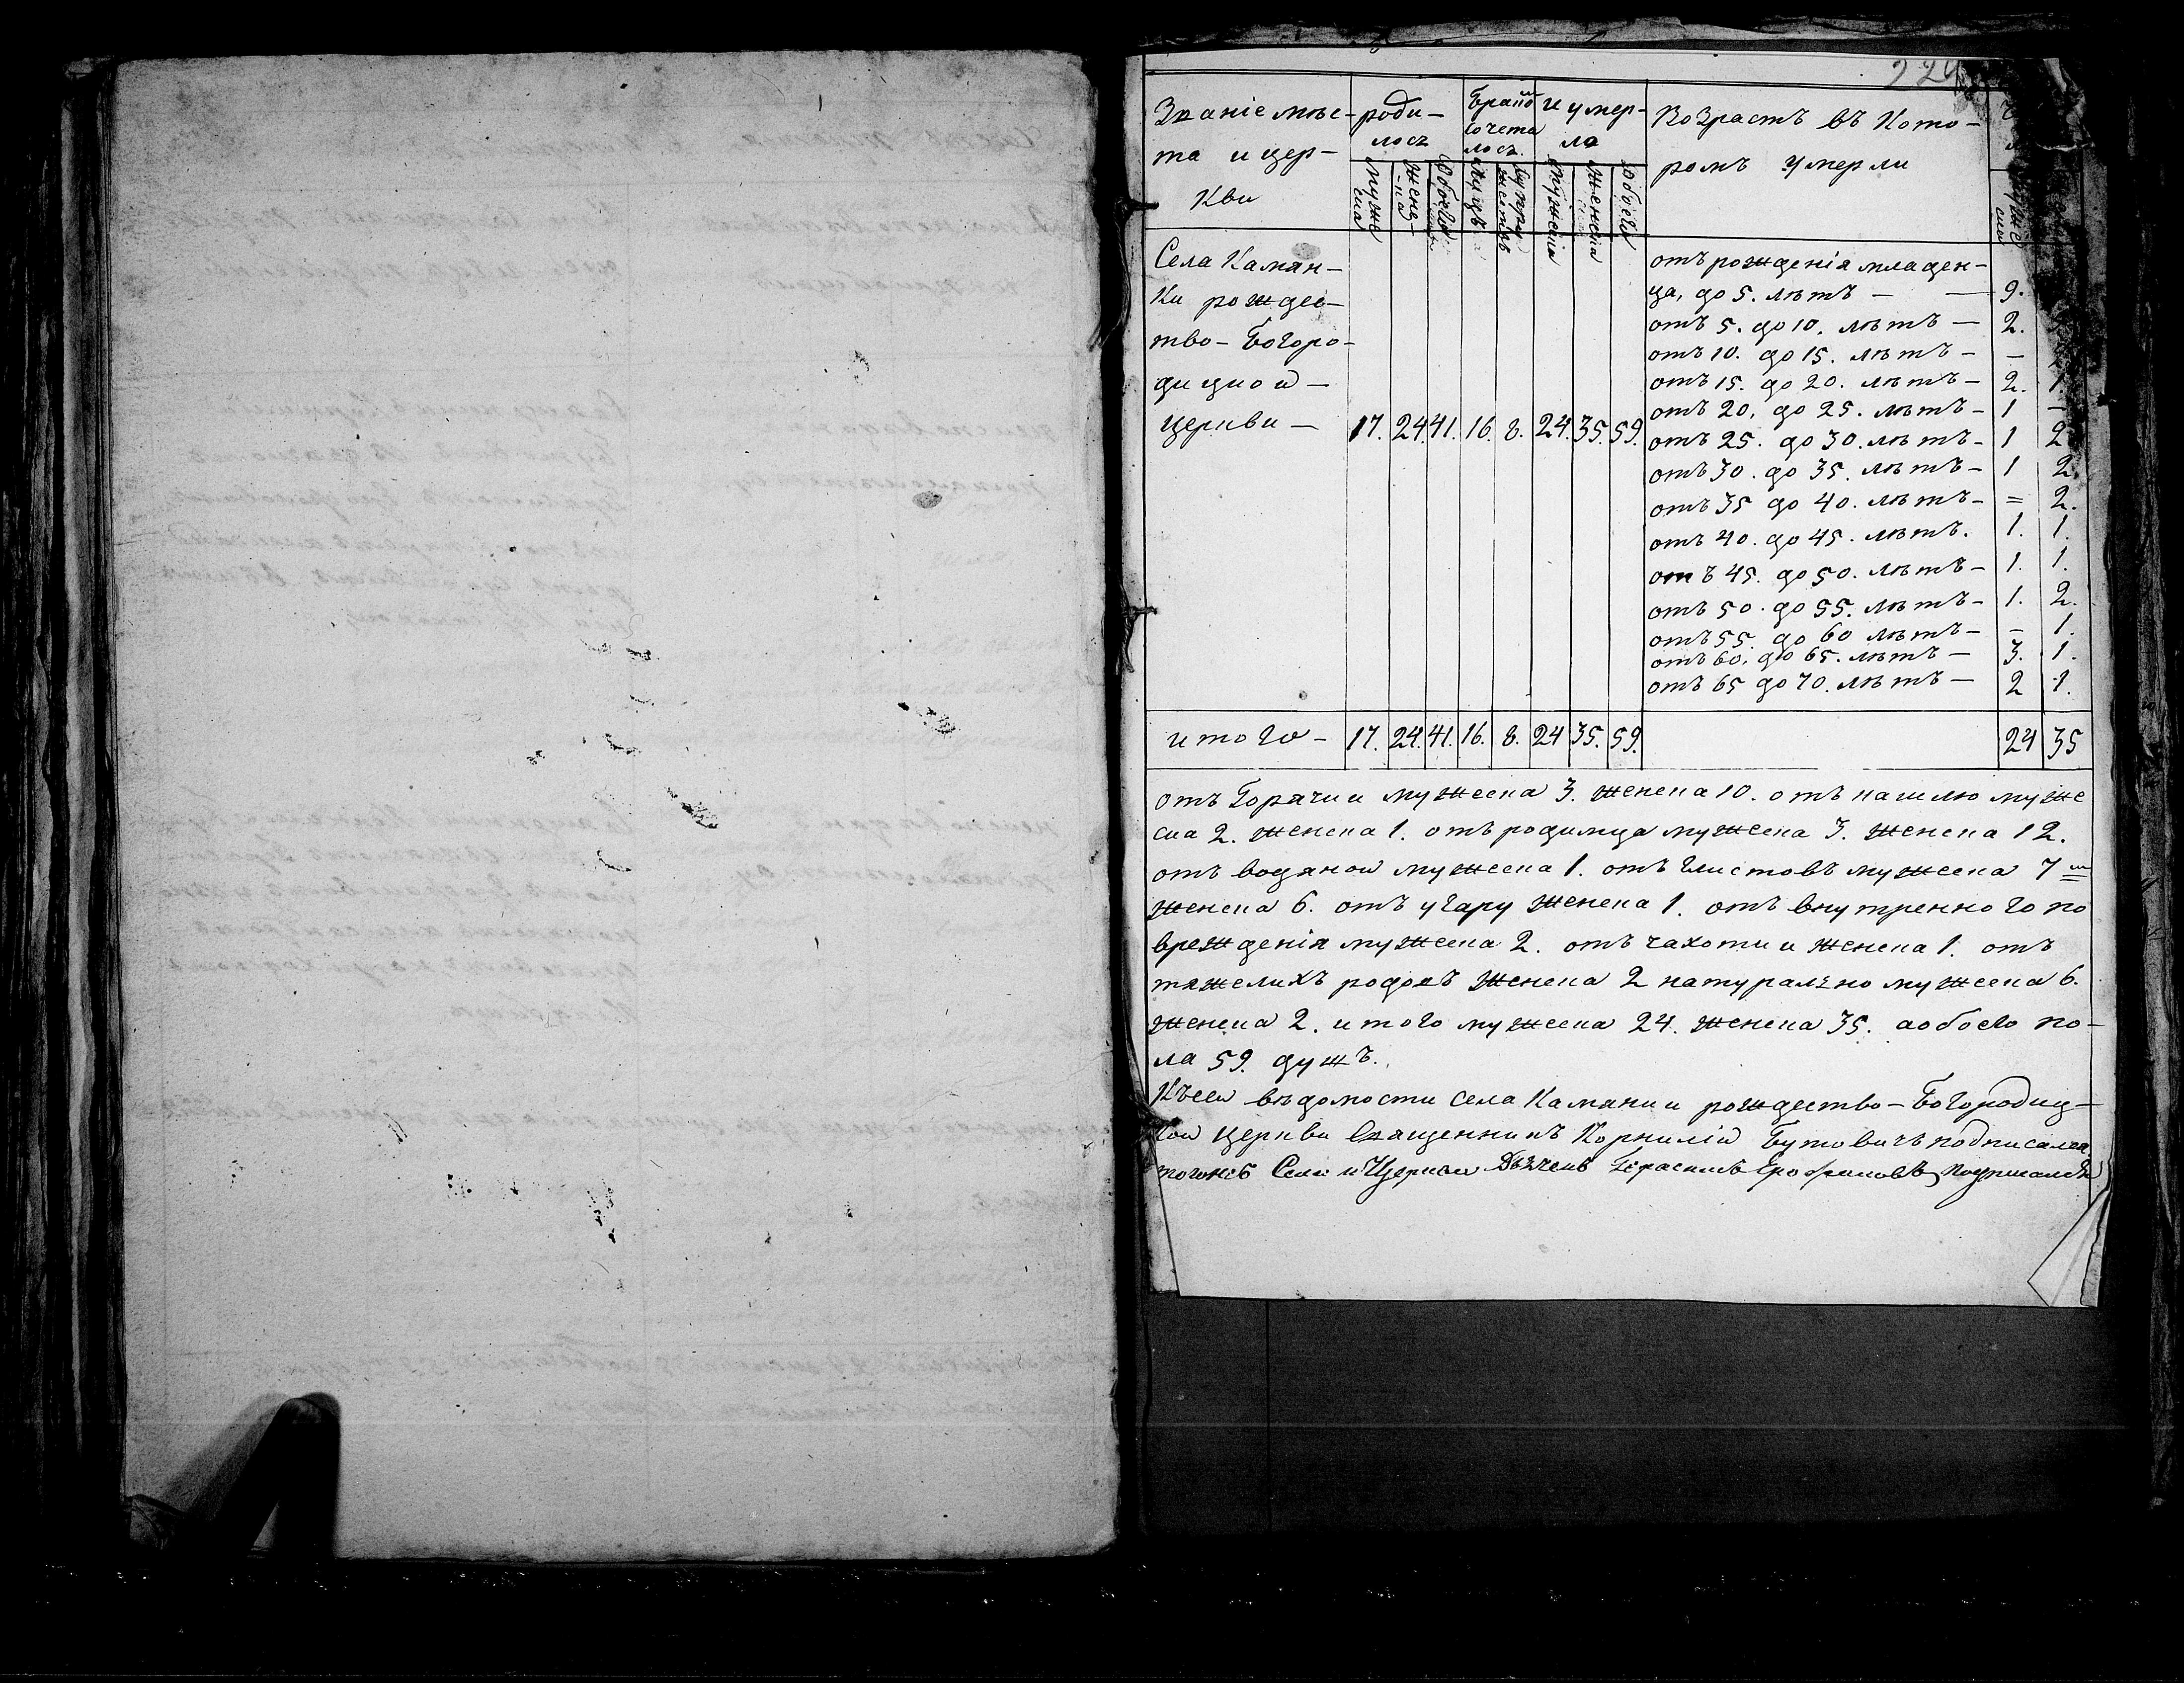 Званіе мѣс- роди- Бракомъ и умер- Возрастъ въ Кото-
та и цер- лось сочета ло ромъ умерли
кви лось.
мужеска женс-ка обоего лицъ супружествъ мужеска женска обоего мужес
Села Камян-
ки рождес-
тво-Богоро-
дицной-
церкви - 17. 24. 41. 16. 8. 24. 35. 59.
отъ рожденія младен-
ца, до 5. лѣтъ - - 9.
отъ 5. до 10. лѣтъ - 2.
отъ 10. до 15. лѣтъ - -
отъ 15. до 20. лѣтъ - 2. 1.
отъ 20. до 25. лѣтъ - 1 -
отъ 25. до 30. лѣтъ - 1 2
отъ 30. до 35. лѣтъ - 1 2.
отъ 35 до 40. лѣтъ - = 2.
отъ 40. до 45. лѣтъ. 1. 1.
отъ 45. до 50. лѣтъ - 1. 1.
отъ 50. до 55. лѣтъ - 1. 2.
отъ 55. до 60 лѣтъ - - 1.
отъ 60. до 65. лѣтъ - 3. 1.
отъ 65 до 70. лѣтъ - 2 1.
итого - 17. 24. 41. 16. 8. 24 35. 59. 24 35
отъ Горячки мужеска 3. женска 10. отъ кашлю муже
ска 2. женска 1. отъ родимца мужеска 3. женска 12.
отъ водяной мужеска 1. отъ глистовъ мужеска 7
женска 6. отъ угару женска 1. отъ внутренного по
врежденія мужеска 2. отъ чахотки женска 1. отъ
тяжелихъ родовъ женска 2 натурално мужеска 6.
женска 2. итого мужеска 24. женска 35. а обоего по-
ла 59. душъ.
Къ сей вѣдомости села Камянки рождество-Богородиц-
кой церкви Священникъ Корнилій Бутовичъ подписался
тогожъ Села и Церкви Дьячекъ Герасимъ подписался